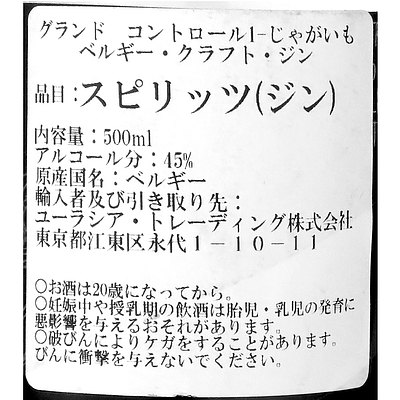 グランド　コントロール1-じゃがいも
ベルギー・クラフト・ジン
品目：スピリッツ(ジン)
内容量：500ml
アルコール分：45%
原産国名：ベルギー
輸入者及び引き取り先：
ユーラシア・トレーディング株式会社
東京都江東区永代１－１０－１１
○お酒は20歳になってから。
○妊娠中や授乳期の飲酒は胎児・乳児の発育に
悪影響を与えるおそれがあります。
○破びんによりケガをすることがあります。
びんに衝撃を与えないでください。